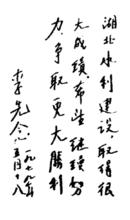 湖北水利建设,取得很
大成绩,希望继续努
力,争取更大胜利
李先念
一九七九年
五月十八